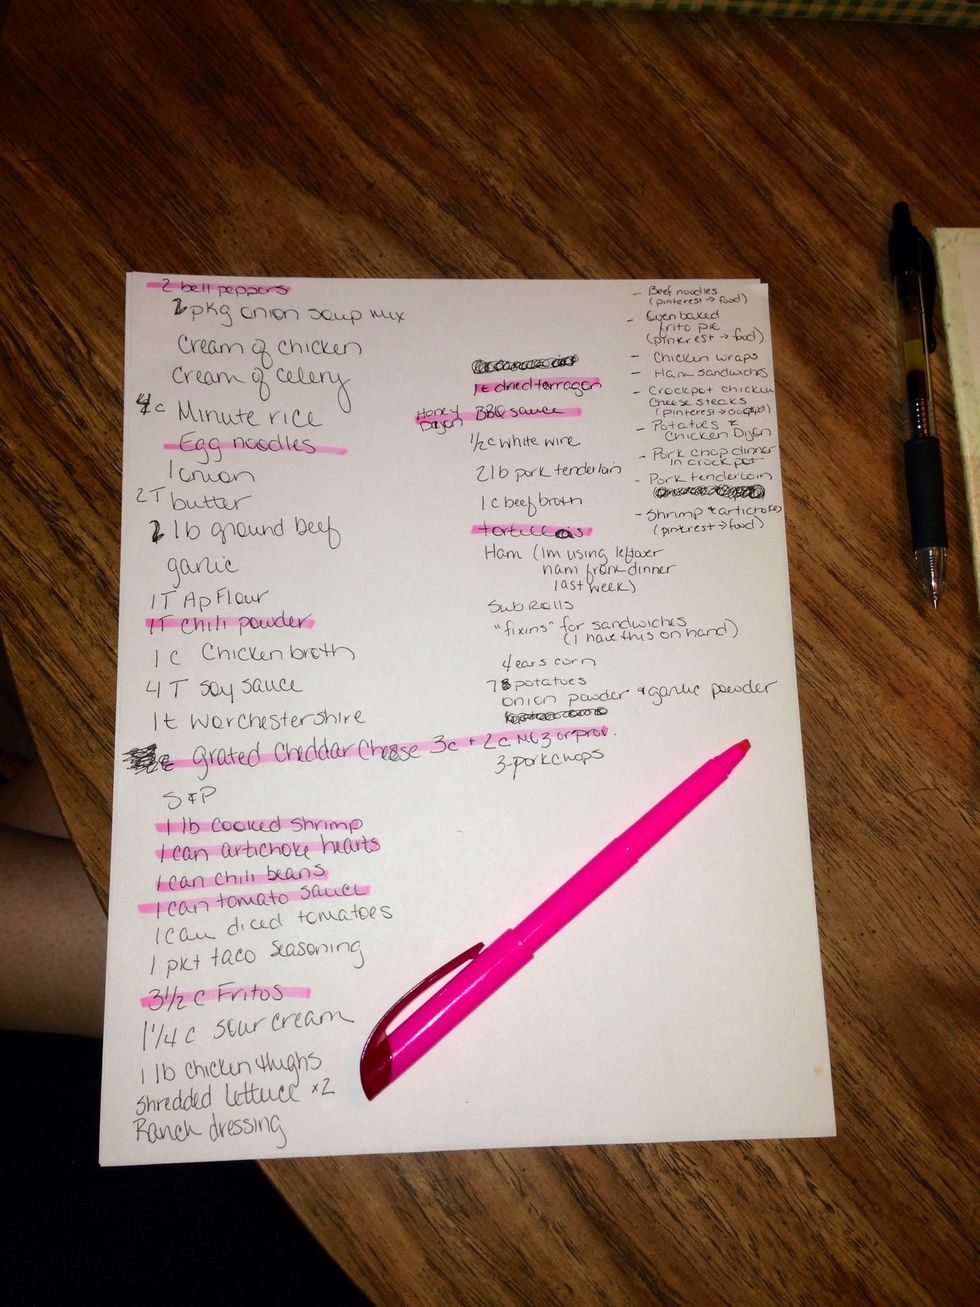 2 bell peppers
2 pkg onion soup mix
Cream of chicken
Cream of celery
4c Minute rice
Egg noodles
1 onion
2T butter
2 lb ground beef
garlic
1T Ap Flour
1T chili powder
1 c Chicken broth
4 T soy sauce
1t Worchestershire
grated Cheddar Cheese 3c + 2c
S&P
1 lb cooked shrimp
1 can artichoke hearts
1 can chili beans
1 can tomato sauce
1 can diced tomatoes
1 pkt taco seasoning
3 1/2 c Fritos
1 1/4 c sour cream
1 lb chicken thighs
Shredded lettuce x2
Ranch dressing
1t dried tarragon
Honey Dijon BBQ sauce
1/2 c white wine
2 lb pork tenderloin
1 c beef broth
tortillas
Ham (Im using leftover
ham from dinner
last week)
Sub Rolls
"fixins" for sandwiches
(I have this on hand)
4 ears corn
78 potatoes
onion powder & garlic powder
3-porkchops
- Beef noodles
(pinterest → food)
- Oven baked
frito pie
(pinterest → food)
- Chicken wraps
- Ham sandwiches
- Crockpot chicken
Cheese steaks
(pinterest →
- Potatoes &
Chicken Dijon
- Pork chop dinner
in crockpot
- Pork tenderloin
- Shrimp & artichokes
(pinterest → food)